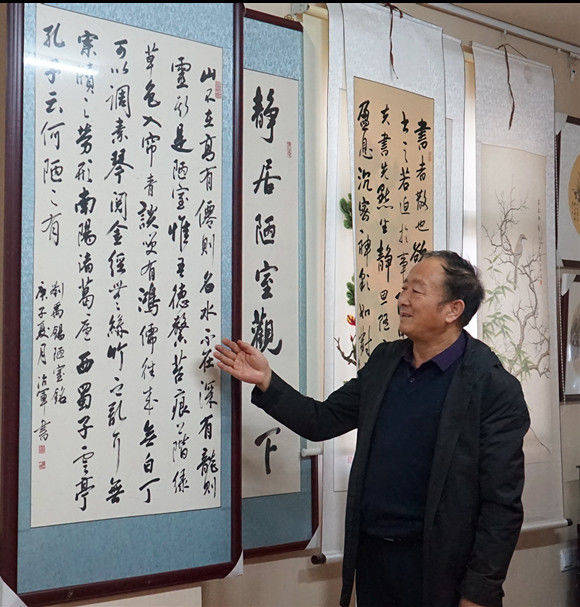 山不在高有僊則名水不在深有龍則
靈斯是陋室惟吾德馨苔痕上階绿
草色入帘青談笑有鴻儒往来無白丁
可以調素琴閱金經無絲竹之亂耳無
案牘之勞形南陽諸葛廬西蜀子雲亭
孔子云何陋之有
劉禹錫陋室銘
庚子夏月
靜居陋室觀下
書者散也欲
書之若迫於事
夫書先默坐靜思
息沉密神彩如對